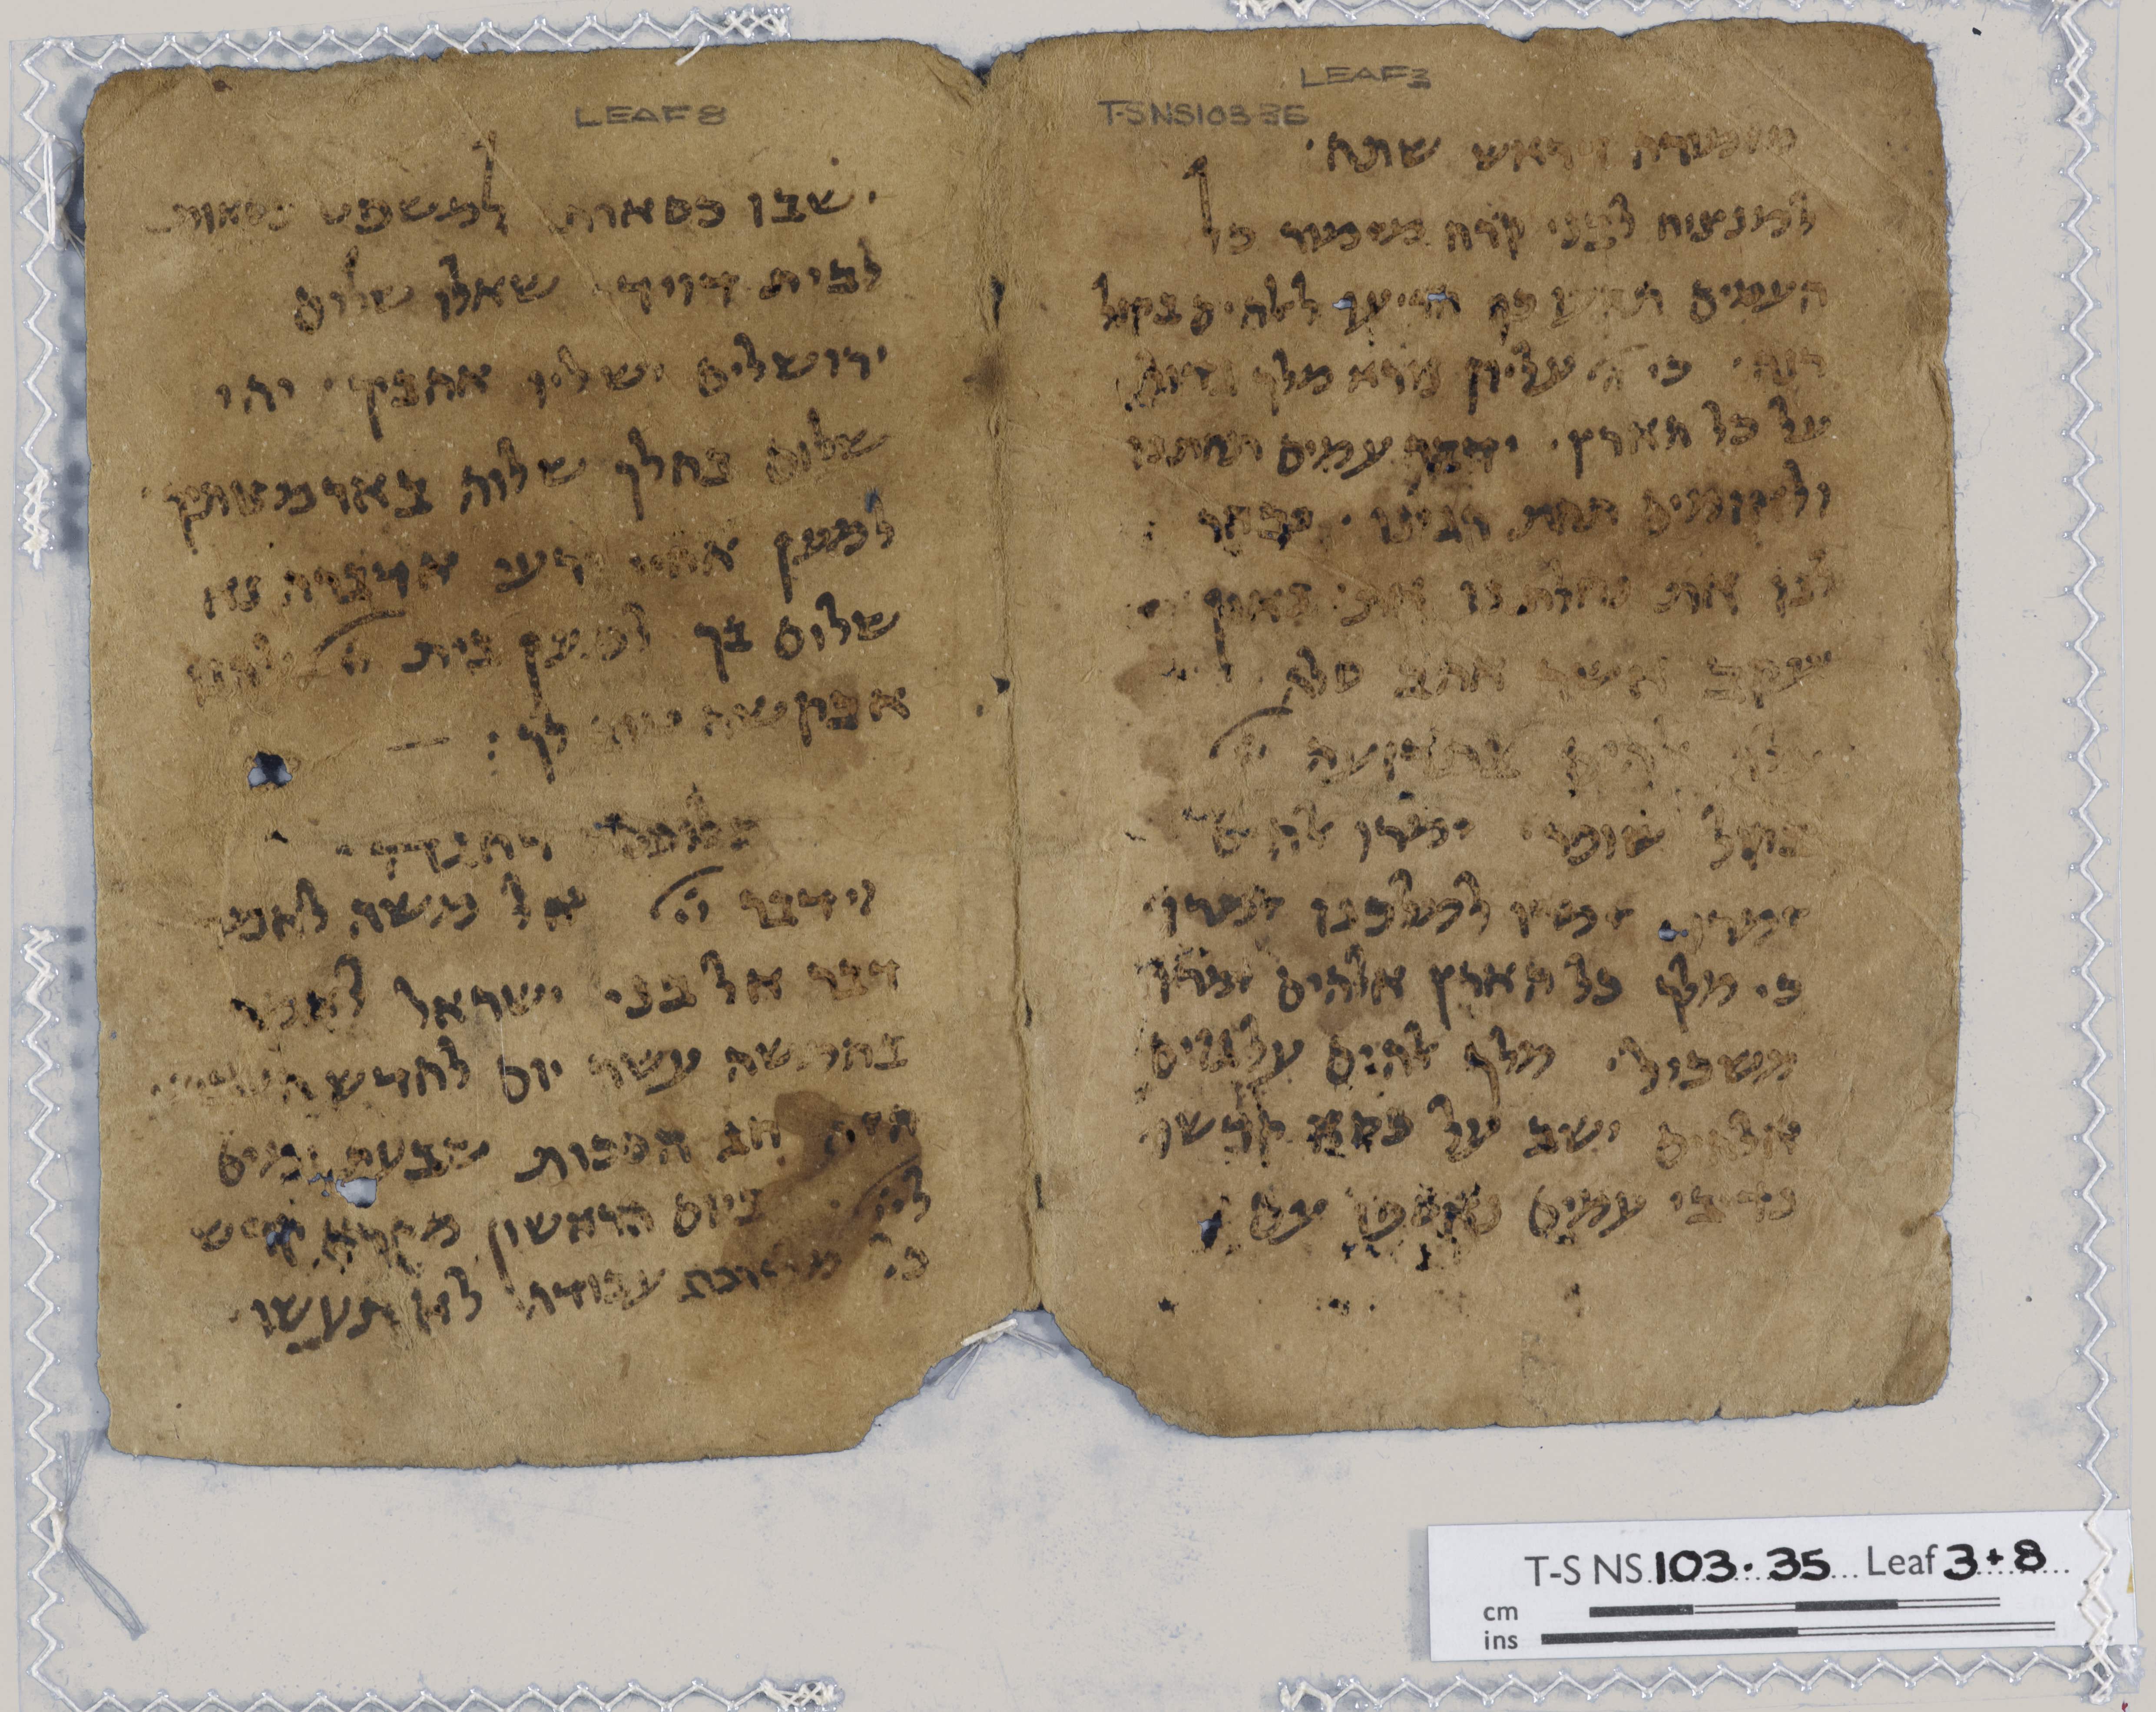 LEAF 3
T-S NS103-35
ראש שנה
למנצח לבני קרח מזמור כל
העמים תקעו כף הריעו לאלהים בקול
רנה כי עליון נורא מלך גדול
על כל הארץ ידבר עמים תחתנו
ולאומים תחת רגלינו יבחר
לנו את נחלתנו את גאון
יעקב אשר אהב סלה
עלה אלהים בתרועה
בקול שופר זמרו אלהים
זמרו זמרו למלכנו זמרו
כי מלך כל הארץ אלהים זמרו
משכיל מלך אלהים על גוים
אלהים ישב על כסא קדשו
נדיבי עמים נאספו עם
LEAF 8
ישבו כסאות למשפט כסאות
לבית דויד שאלו שלום
ירושלים ישליו אהביך יהי
שלום בחלך שלוה בארמנותיך
למען אחי ורעי אדברה נא
שלום בך למען בית
אבקשה טוב לך
וידבר אל משה לאמר
דבר אל בני ישראל לאמר
בחמשה עשר יום לחדש השביעי
הזה חג הסכות שבעת ימים
ליי ביום הראשון מקרא קדש
כל מלאכת עבודה לא תעשו
T-S NS 103.35 Leaf 3+8
cm
ins